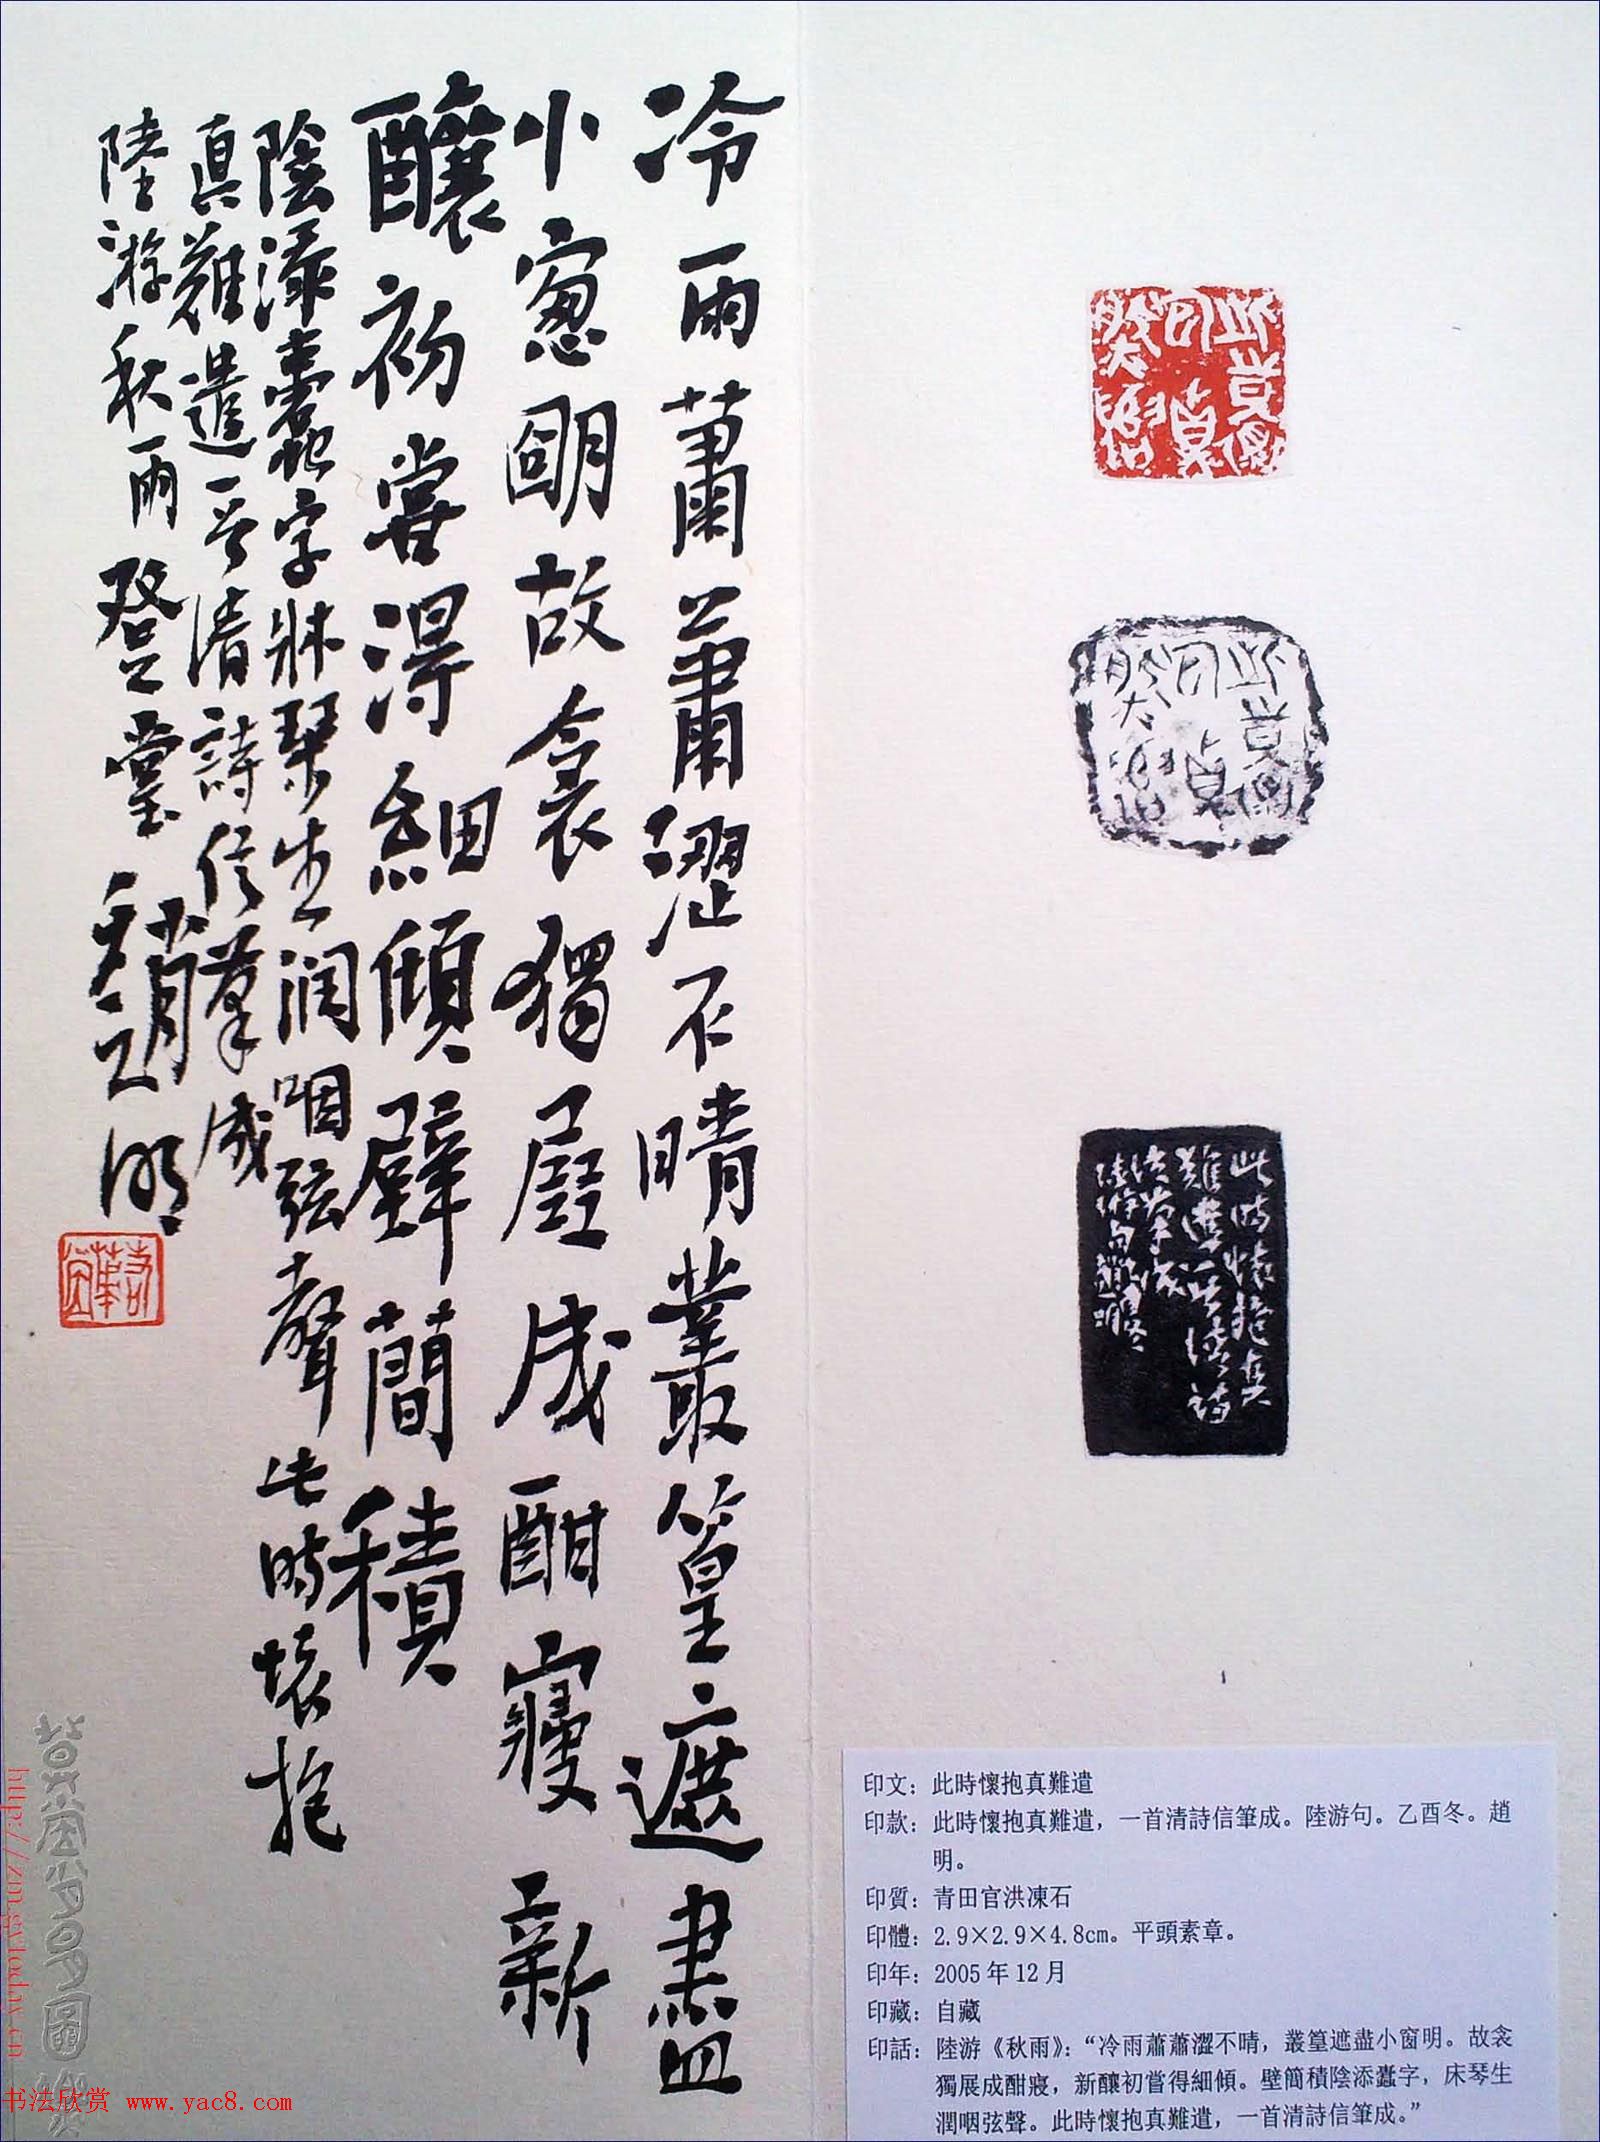 冷雨蕭蕭澀不晴叢篁遮盡
小窻明故衾獨展成酣寢新
釀初嘗得細傾壁簡積
陰添蠹字牀琴生潤咽弦聲此時懷抱
真難遣一首清詩信筆成
陸游秋雨登堂趙明
此時懷抱真
難遣一首清詩
信筆成
陸游句
印文：此時懷抱真難遣
印款：此時懷抱真難遣，一首清詩信筆成。陸游句。乙酉冬。趙
明。
印質：青田官洪凍石
印體：2.9×2.9×4.8cm。平頭素章。
印年：2005年12月
印藏：自藏
印話：陸游《秋雨》：“冷雨蕭蕭澀不晴，叢篁遮盡小窗明。故衾
獨展成酣寢，新釀初嘗得細傾。壁簡積陰添蠹字，床琴生
潤咽弦聲。此時懷抱真難遣，一首清詩信筆成。”
书法欣赏 www.yac8.com